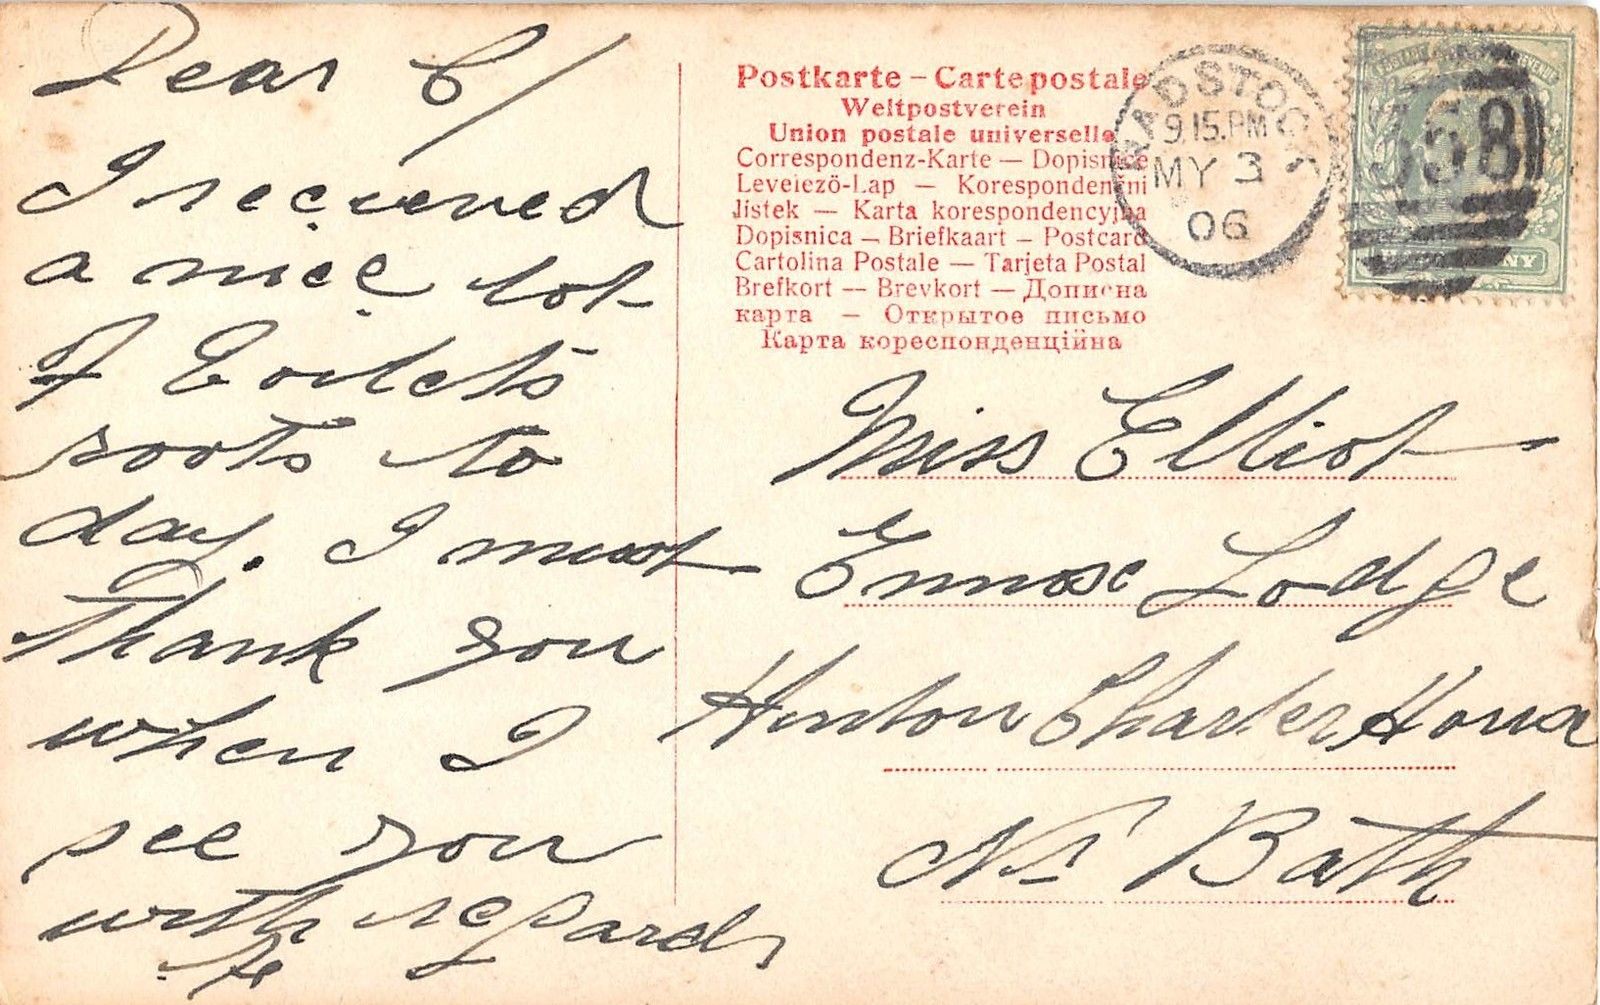 Dear C/
I recieved
a nice lot
of
roots to
day. I must
Thank you
when I
see you
with regards
Postkarte – Carte postale
Weltpostverein
Union postale universelle
Correspondenz-Karte — Dopisnice
Levelező-Lap — Korespondenční
lístek — Karta korespondencyjna
Dopisnica — Briefkaart — Postcard
Cartolina Postale — Tarjeta Postal
Brefkort — Brevkort — Дописна
карта — Открытое письмо
Карта кореспонденційна
RADSTOCK
9.15.PM
MY 3
06
658
Miss Elliot
Lodge
Hinton Charter House
Nr Bath